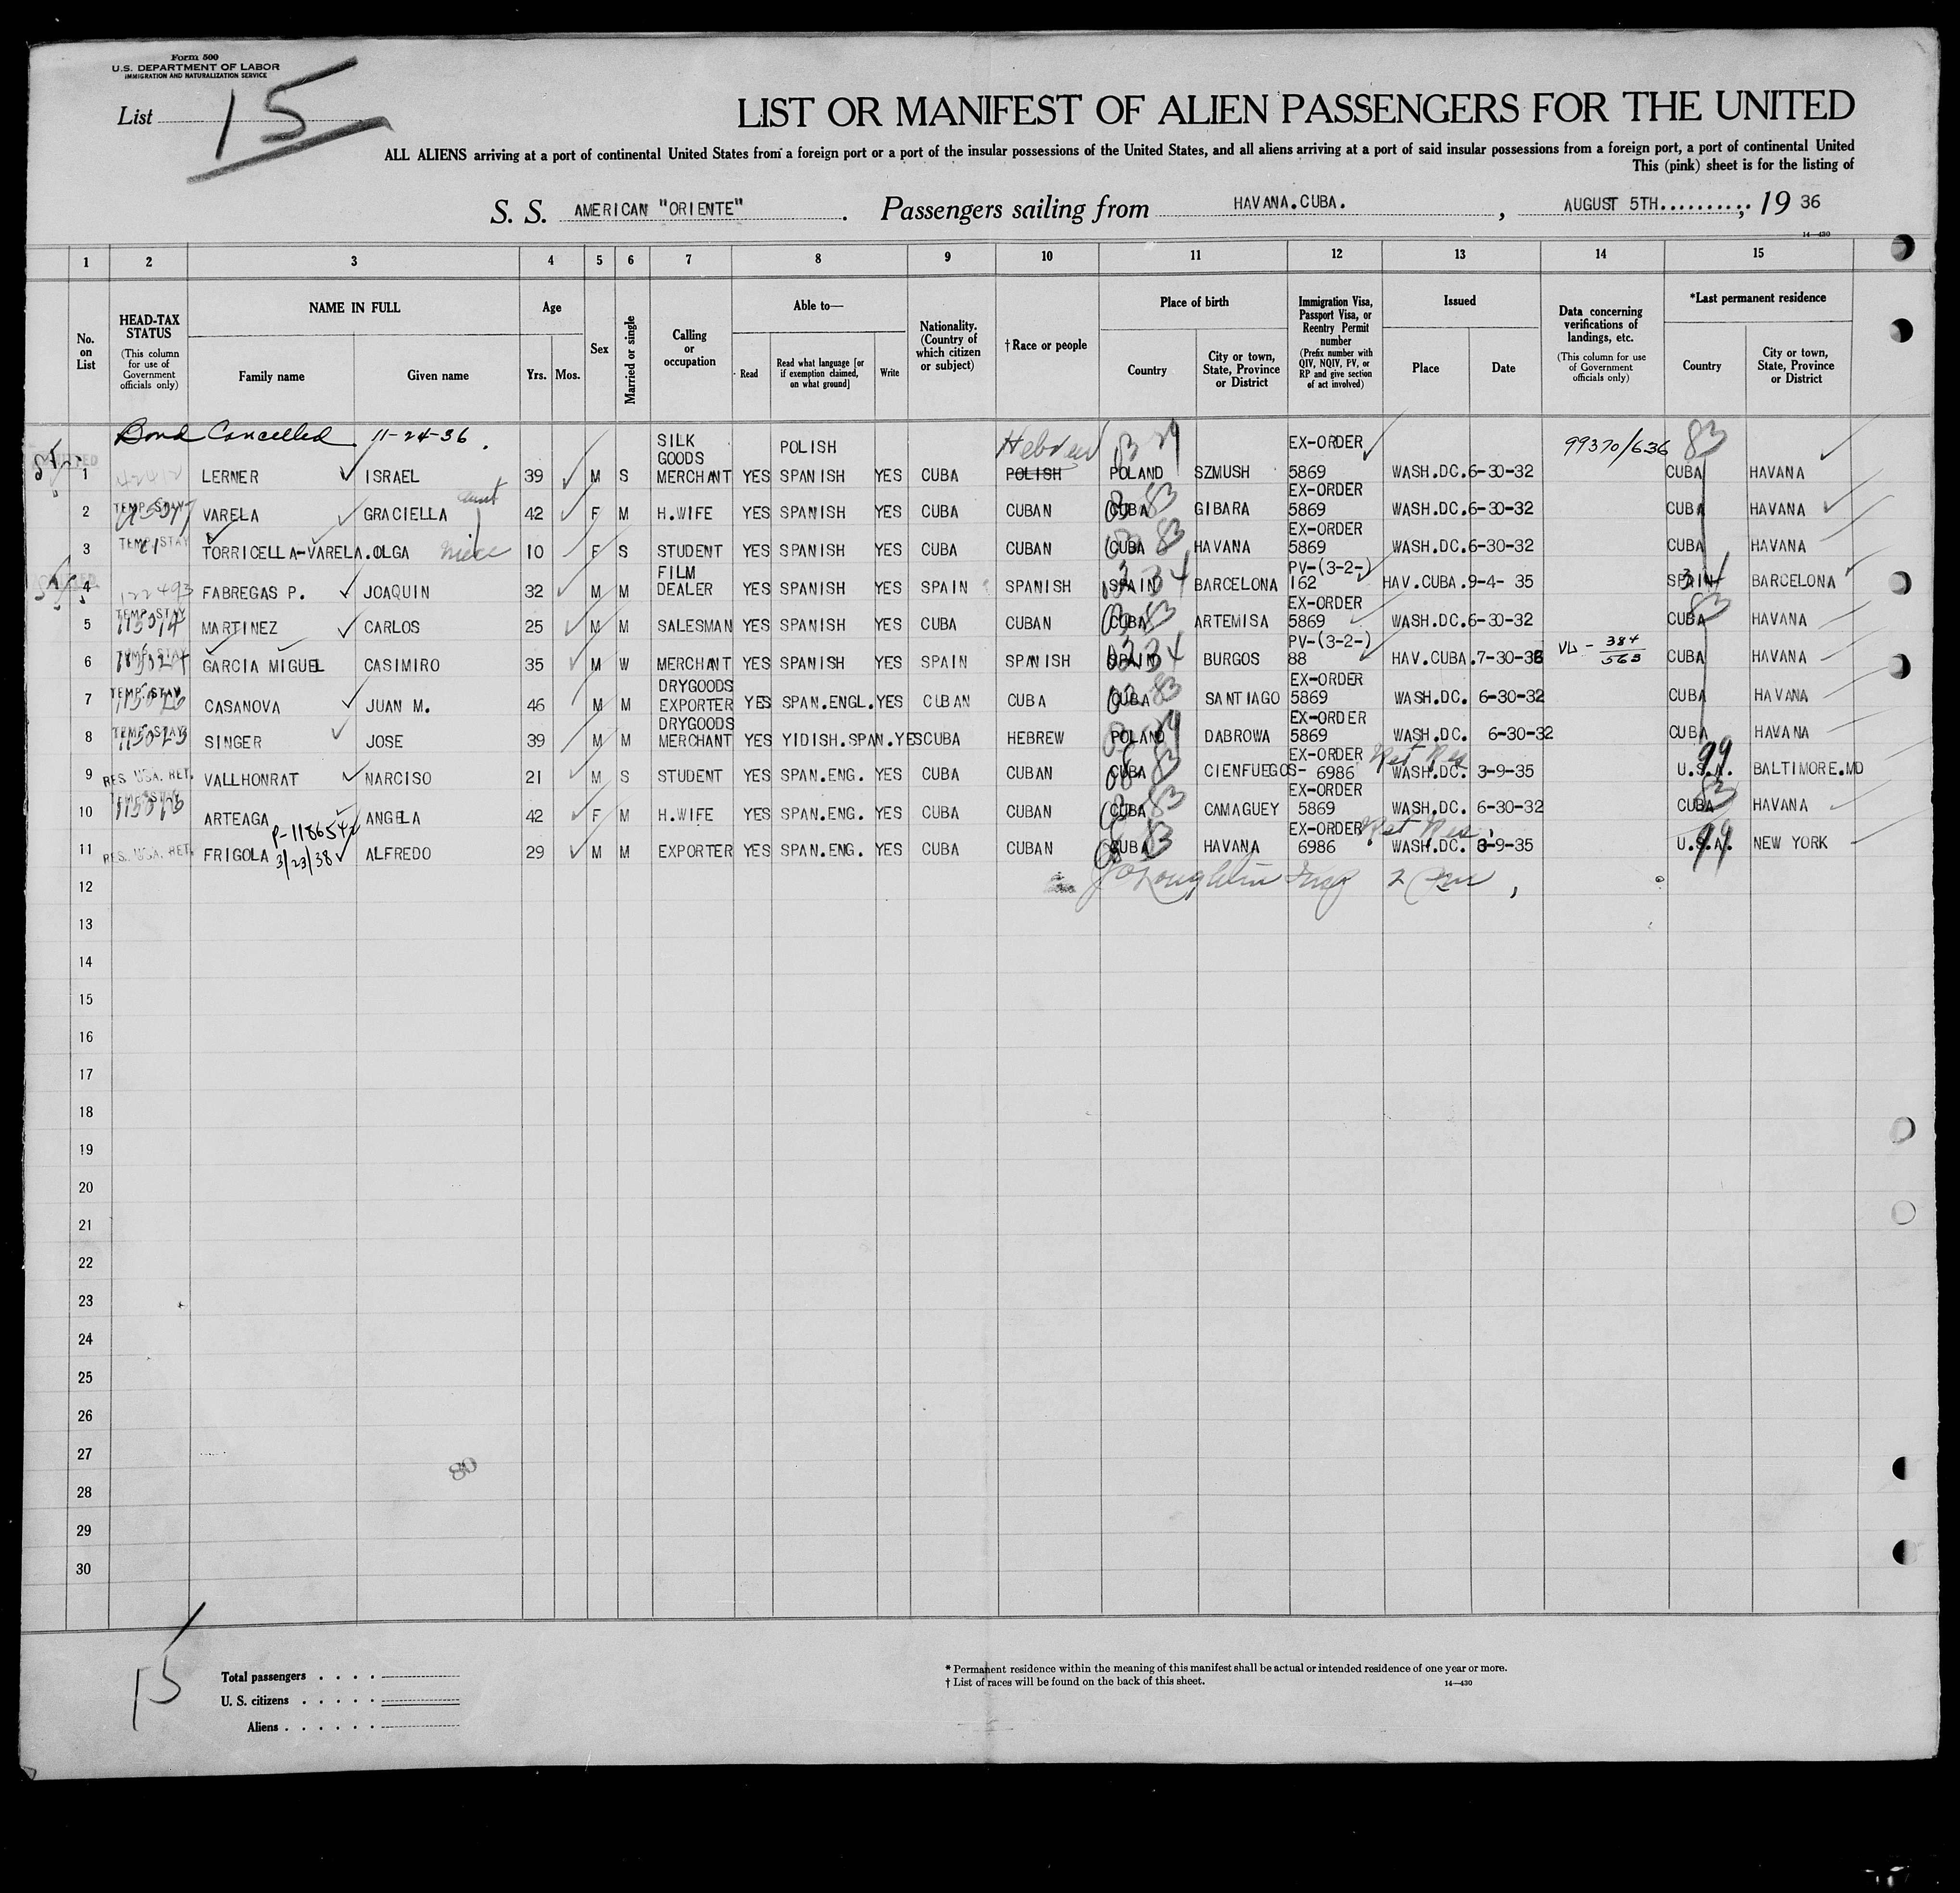 Form 500
U.S. DEPARTMENT OF LABOR
IMMIGRATION AND NATURALIZATION SERVICE
List 15
LIST OR MANIFEST OF ALIEN PASSENGERS FOR THE UNITED
ALL ALIENS arriving at a port of continental United States from a foreign port or a port of the insular possessions of the United States, and all aliens arriving at a port of said insular possessions from a foreign port, a port of continental United
This (pink) sheet is for the listing of
S. S. AMERICAN "ORIENTE". Passengers sailing from HAVANA.CUBA., AUGUST 5TH.........., 19 36
14—430
1 2 3 4 5 6 7 8 9 10 11 12 13 14 15
No. on List
HEAD-TAX STATUS
(This column for use of Government officials only)
NAME IN FULL
Family name Given name
Age
Yrs. Mos.
Sex
Married or single
Calling or occupation
Able to—
Read Read what language [or if exemption claimed, on what ground] Write
Nationality. (Country of which citizen or subject)
† Race or people
Place of birth
Country City or town, State, Province or District
Immigration Visa, Passport Visa, or Reentry Permit number
(Prefix number with QIV, NQIV, PV, or RP and give section of act involved)
Issued
Place Date
Data concerning verifications of landings, etc.
(This column for use of Government officials only)
*Last permanent residence
Country City or town, State, Province or District
Bond Cancelled 11-24-36.
SILK GOODS POLISH Hebrew EX-ORDER 99370/636 83
1 LERNER ISRAEL 39 M S MERCHANT YES SPANISH YES CUBA POLISH POLAND SZMUSH 5869 WASH.DC. 6-30-32 CUBA HAVANA
TEMP. STAY aunt EX-ORDER
2 VARELA GRACIELLA 42 F M H.WIFE YES SPANISH YES CUBA CUBAN CUBA 83 GIBARA 5869 WASH.DC. 6-30-32 CUBA HAVANA
TEMP. STAY EX-ORDER
3 TORRICELLA-VARELA.OLGA niece 10 F S STUDENT YES SPANISH YES CUBA CUBAN CUBA 83 HAVANA 5869 WASH.DC. 6-30-32 CUBA HAVANA
FILM PV-(3-2-)
4 122493 FABREGAS P. JOAQUIN 32 M M DEALER YES SPANISH YES SPAIN SPANISH SPAIN BARCELONA 162 HAV.CUBA. 9-4- 35 SPAIN BARCELONA
TEMP. STAY EX-ORDER 83
5 MARTINEZ CARLOS 25 M M SALESMAN YES SPANISH YES CUBA CUBAN CUBA 83 ARTEMISA 5869 WASH.DC. 6-30-32 CUBA HAVANA
TEMP. STAY PV-(3-2-) 384/565
6 GARCIA MIGUEL CASIMIRO 35 M W MERCHANT YES SPANISH YES SPAIN SPANISH SPAIN BURGOS 88 HAV.CUBA. 7-30-36 CUBA HAVANA
TEMP. STAY DRYGOODS EX-ORDER
7 CASANOVA JUAN M. 46 M M EXPORTER YES SPAN.ENGL. YES CUBAN CUBA CUBA 83 SANTIAGO 5869 WASH.DC. 6-30-32 CUBA HAVANA
TEMP. STAY DRYGOODS EX-ORDER
8 SINGER JOSE 39 M M MERCHANT YES YIDISH.SPAN. YES CUBA HEBREW POLAND DABROWA 5869 WASH.DC. 6-30-32 CUBA HAVANA
EX-ORDER Ret Res 99
9 RES. USA. RET. VALLHONRAT NARCISO 21 M S STUDENT YES SPAN.ENG. YES CUBA CUBAN CUBA 83 CIENFUEGOS- 6986 WASH.DC. 3-9-35 U.S.A. BALTIMORE.MD
TEMP. STAY EX-ORDER 83
10 ARTEAGA ANGELA 42 F M H.WIFE YES SPAN.ENG. YES CUBA CUBAN CUBA 83 CAMAGUEY 5869 WASH.DC. 6-30-32 CUBA HAVANA
P-118654 EX-ORDER Ret Res. 99
11 RES. USA. RET. FRIGOLA 3/23/38 ALFREDO 29 M M EXPORTER YES SPAN.ENG. YES CUBA CUBAN CUBA 83 HAVANA 6986 WASH.DC. 3-9-35 U.S.A. NEW YORK
12
13
14
15
16
17
18
19
20
21
22
23
24
25
26
27
80
28
29
30
15
Total passengers . . . .
U. S. citizens . . . . .
Aliens . . . . . .
* Permanent residence within the meaning of this manifest shall be actual or intended residence of one year or more.
† List of races will be found on the back of this sheet.
14—430